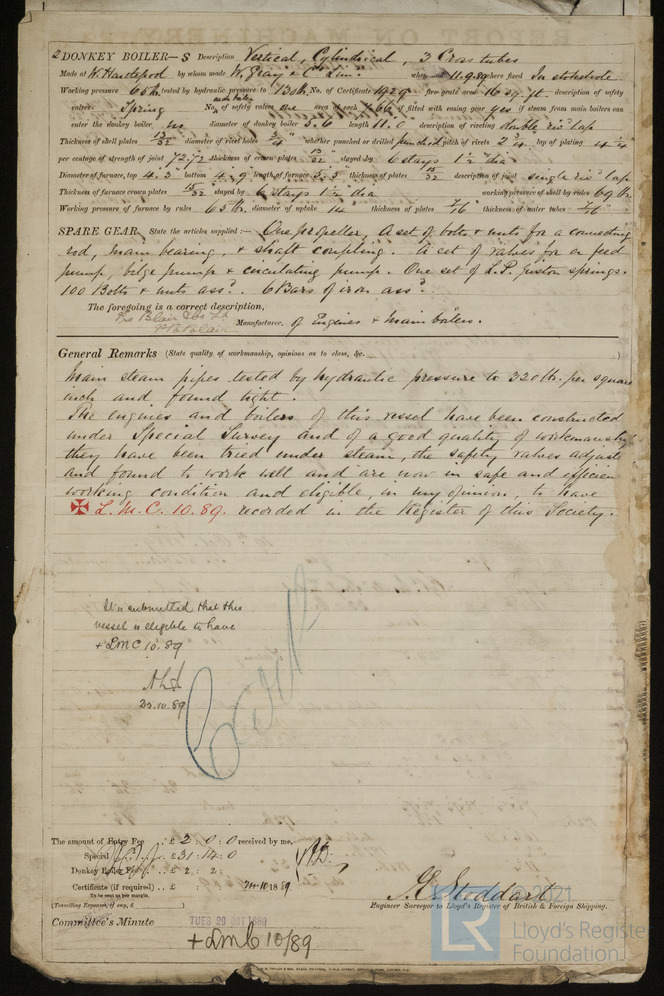 2 DONKEY BOILER—S Description Vertical, Cylindrical, 3 Cross tubes
Made at W. Hartlepool by whom made W. Gray & Co Lim. when made 11.9.89 where fixed In stokehole
Working pressure tested by hydraulic pressure to 130 lb. No. of Certificate 1929 fire grate area 16 sq. ft. description of safety
valves Spring No. of safety valves one area of each 7.66 if fitted with easing gear yes if steam from main boilers can
enter the donkey boiler no diameter of donkey boiler 5.6 length 11.0" description of riveting double riv. lap
Thickness of shell plates 13/32 diameter of rivet holes 3/4" whether punched or drilled punched pitch of rivets 2 3/4 lap of plating 4 1/4
per centage of strength of joint 72.72 thickness of crown plates 13/32 stayed by 6 stays 1 1/2" dia
Diameter of furnace, top 4.3" bottom 4.9 length of furnace 5.5" thickness of plates 15/32 description of joint single riv. lap
Thickness of furnace crown plates 15/32 stayed by 6 stays 1 1/2 dia working pressure of shell by rules 69 lb.
Working pressure of furnace by rules 65 lb. diameter of uptake 14" thickness of plates 7/16" thickness of water tubes 7/16"
SPARE GEAR. State the articles supplied:— One propeller, A set of bolts & nuts for a connecting
rod, main bearing, & shaft coupling. A set of valves for en feed
pump, bilge pump & circulating pump. One set of L.P. piston springs.
100 Bolts & nuts assd. 6 Bars of iron assd.
The foregoing is a correct description,
Pro Blair & Co Ld
Manufacturer. of Engines & main boilers.
General Remarks (State quality of workmanship, opinions as to class, &c. )
Main steam pipes tested by hydraulic pressure to 320 lb. per square
inch and found tight.
The engines and boilers of this vessel have been constructed
under Special Survey and of a good quality of workmanship
they have been tried under steam, the safety valves adjust
and found to work well and are now in safe and efficien
working condition and eligible, in my opinion, to have
✠ L.M.C. 10.89. recorded in the Register of this Society.
It is submitted that this
vessel is eligible to have
+ LMC 10.89
23.10.89
The amount of Entry Fee .. £ 2 : 0 : 0 received by me,
Special .. £ 31 : 14 : 0
Donkey Boiler Fee .. £ 2 : 2 :
Certificate (if required) .. £ : : 10 18 89
To be sent as per margin.
(Travelling Expenses, if any, £ )
J. Stoddart
Engineer Surveyor to Lloyd's Register of British & Foreign Shipping.
Committee's Minute
TUES 29 OCT 1889
+ LMC 10/89
© 2021
LR
Lloyd's Register
Foundation